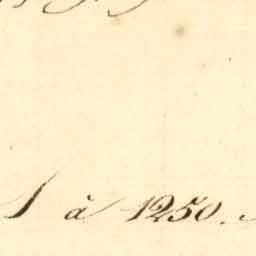 1 à 1250.